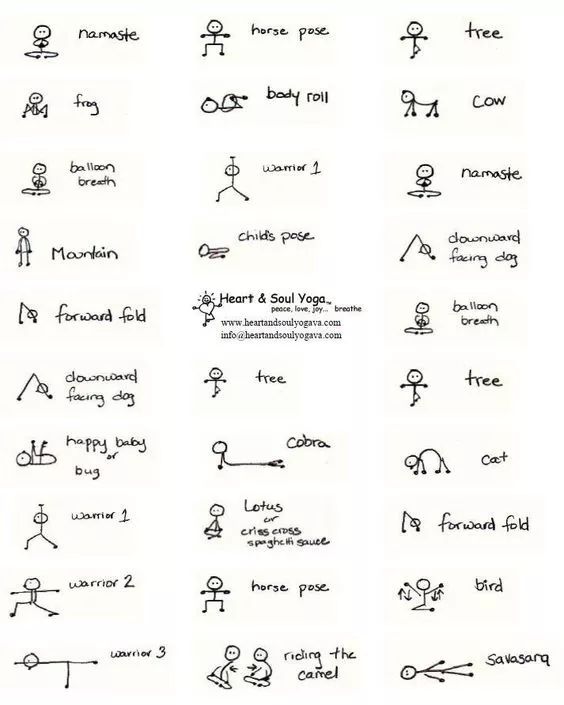 namaste
horse pose
tree
frog
body roll
cow
balloon
breath
warrior 1
namaste
Mountain
child's pose
downward
facing dog
forward fold
Heart & Soul Yoga TM
peace, love, joy... breathe
www.heartandsoulyogava.com
info@heartandsoulyogava.com
balloon
breath
downward
facing dog
tree
tree
happy baby
or
bug
cobra
cat
warrior 1
Lotus
or
criss cross
spaghetti sauce
forward fold
warrior 2
horse pose
bird
warrior 3
riding the
camel
savasana